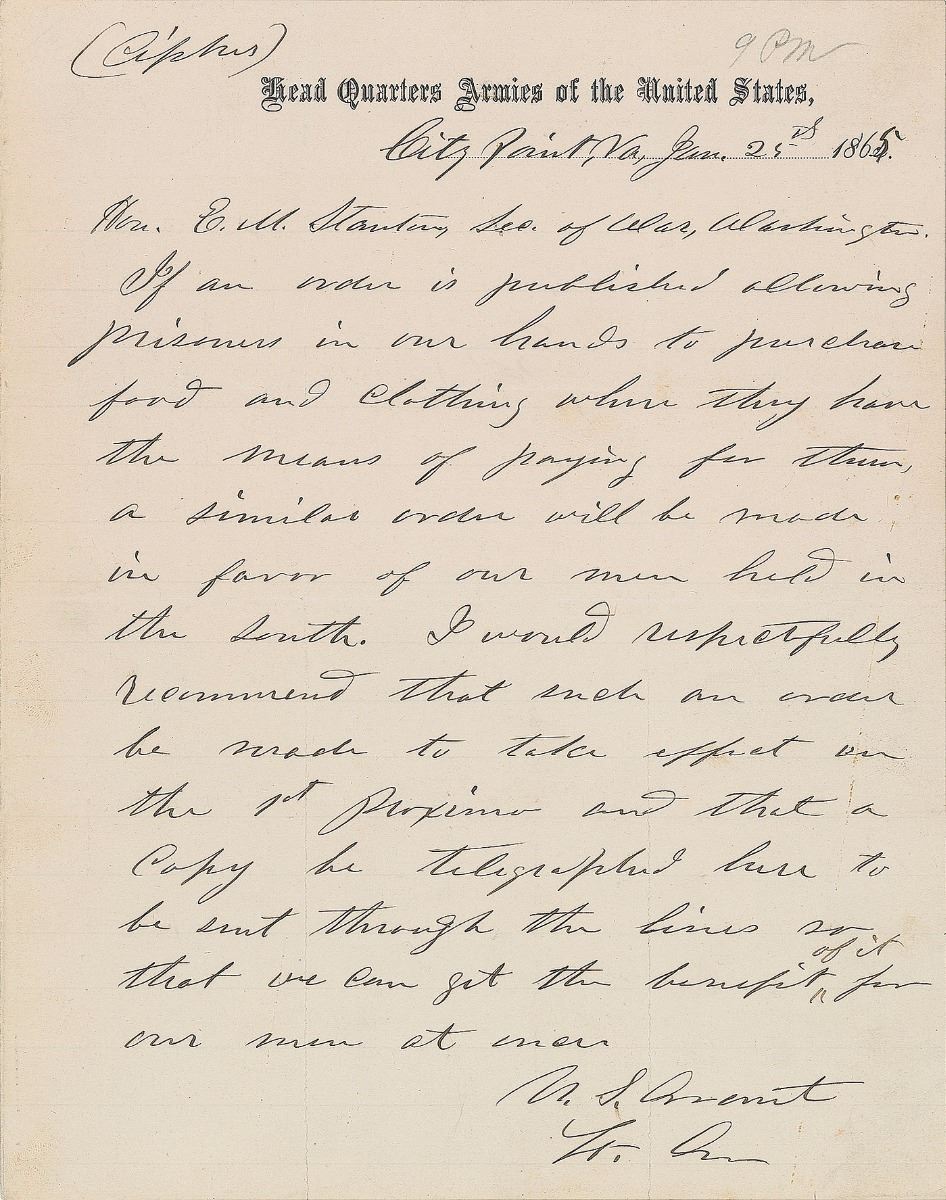 (Cipher)
9 PM
Head Quarters Armies of the United States,
City Point, Va, Jan. 25th 1865.
Hon. E. M. Stanton, Sec. of War, Washington.
If an order is published allowing
prisoners in our hands to purchase
food and clothing where they have
the means of paying for them,
a similar order will be made
in favor of our men held in
the south. I would respectfully
recommend that such an order
be made to take effect on
the 1st proximo and that a
copy be telegraphed here to
be sent through the lines so
that we can get the benefit of it for
our men at once
U. S. Grant
Lt. Gn